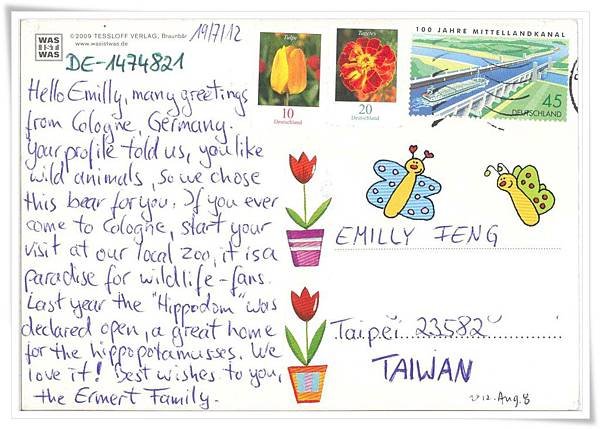 WAS
IST
WAS
©2009 TESSLOFF VERLAG,
www.wasistwas.de
19/7/12
DE-1474821
Hello Emilly, many greetings
from Cologne, Germany.
Your profile told us, you like
wild animals, so we chose
this bear for you. If you ever
come to Cologne, start your
visit at our local zoo, it is a
paradise for wildlife-fans.
Last year the "Hippodom" was
declared open, a great home
for the hippopotamusses. We
love it! Best wishes to you,
the Ermert Family.
Tulpe
10
Deutschland
Tagetes
20
Deutschland
100 JAHRE MITTELLANDKANAL
45
DEUTSCHLAND
EMILLY FENG
Taipei 23582
TAIWAN
2012. Aug. 8